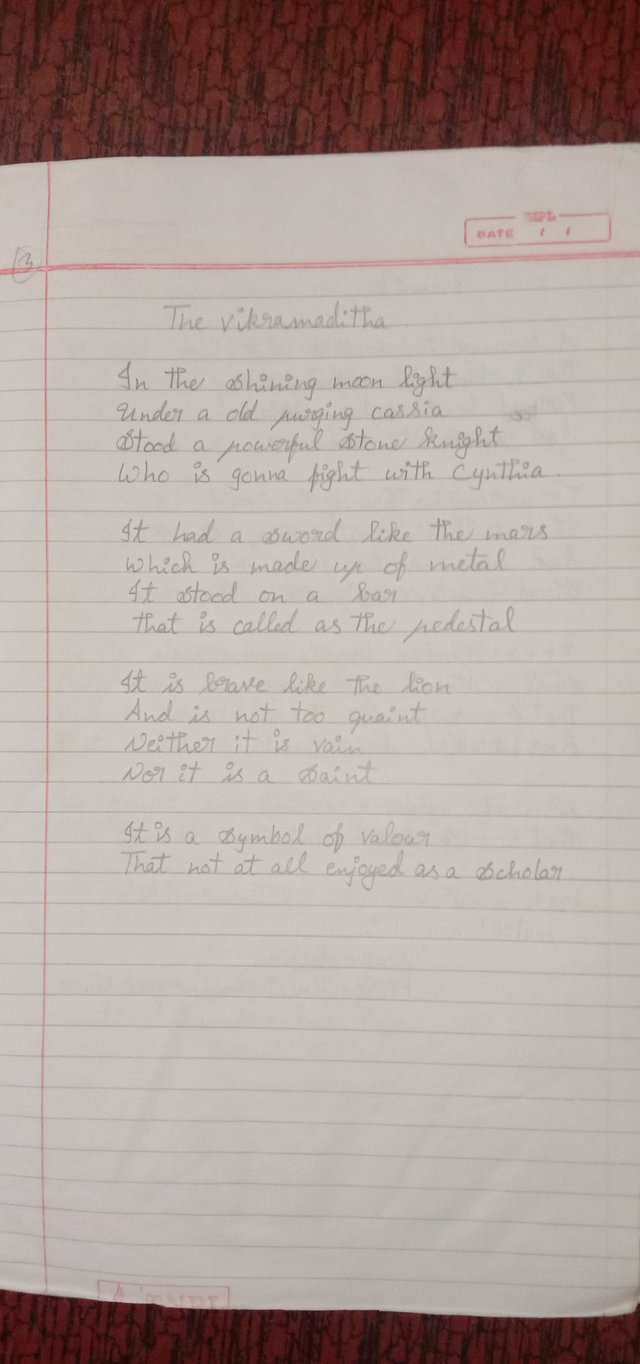 DATE / /
13
The Vikramaditha
In the shining moon light
Under a old purging cassia
Stood a powerful stone knight
Who is gonna fight with Cynthia.
It had a sword like the mars
Which is made up of metal
It stood on a bar
That is called as the pedestal
It is brave like the lion
And is not too quaint
Neither it is vain
Nor it is a saint
It is a symbol of valour
That not at all enjoyed as a scholar